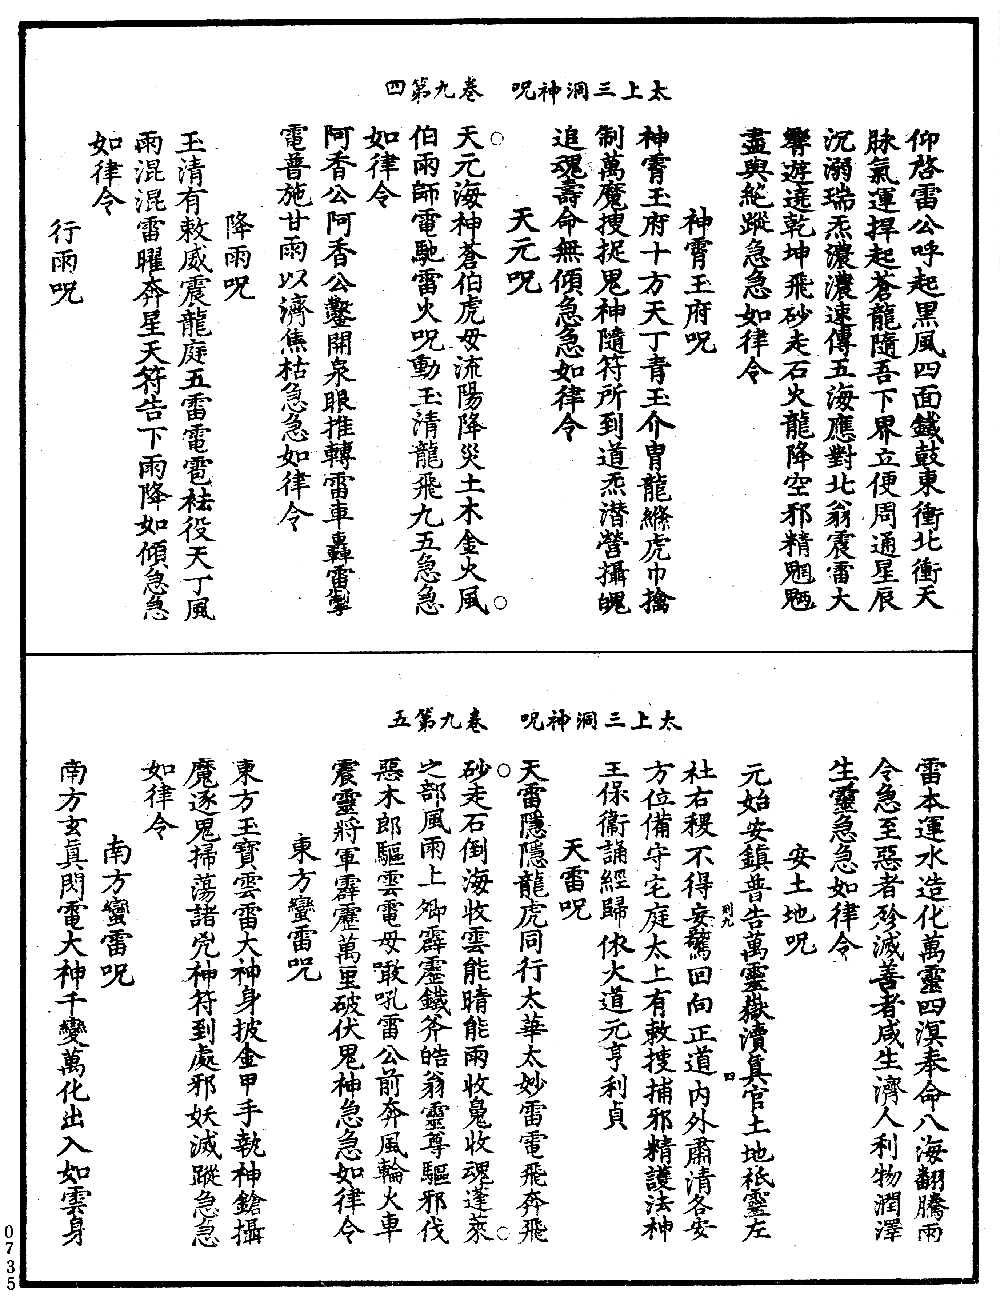 太上三洞神呪　卷九第四
仰啓雷公呼起黑風四面鐵鼓東衝北衝天
脉氣運捍起蒼龍隨吾下界立便周通星辰
沉溺瑞炁濃濃速傳五海應對北翁震雷大
響遊遶乾坤飛砂走石火龍降空邪精魍魎
盡與紇蹤急急如律令
神霄玉府呪
神霄玉府十方天丁青玉介冑龍縧虎巾擒
制萬魔捜捉鬼神隨符所到道炁潜營攝魄
追魂壽命無傾急急如律令
天元呪
天元海神蒼伯虎母流陽降災土木金火風
伯雨師電馳雷火呪動玉清龍飛九五急急
如律令
阿香公阿香公鑿開泉眼推轉雷車轟雷掣
電普施甘雨以濟焦枯急急如律令
降雨呪
玉清有敕威震龍庭五雷電雹袪役天丁風
雨混混雷曜奔星天符告下雨降如傾急急
如律令
行雨呪
太上三洞神呪　卷九第五
雷本運水造化萬靈四溟奉命八海翻騰雨
令急至惡者殄滅善者咸生濟人利物潤澤
生靈急急如律令
安土地呪
元始安鎮普告萬靈嶽瀆真官土地祇靈左
社右稷不得妄驚回向正道内外肅清各安
方位備守宅庭太上有敕搜捕邪精護法神
王保衞誦經歸依大道元亨利貞
天雷呪
天雷隱隱龍虎同行太華太妙雷電飛奔飛
砂走石倒海收雲能晴能雨收鬼收魂蓬萊
之部風雨上卿霹靂鐵斧皓翁靈尊驅邪伐
惡木郎驅雲電母歊吼雷公前奔風輪火車
震靈將軍霹靂萬里破伏鬼神急急如律令
東方蠻雷呪
東方玉寶雲雷大神身披金甲手執神鎗攝
魔逐鬼掃蕩諸兇神符到處邪妖滅蹤急急
如律令
南方蠻雷呪
南方玄真閃電大神千變萬化出入如雲身
則九
四
0735